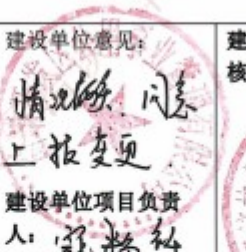 建设单位意见：
情况属实，同意
上报变更
建设单位项目负责
人：
建
核